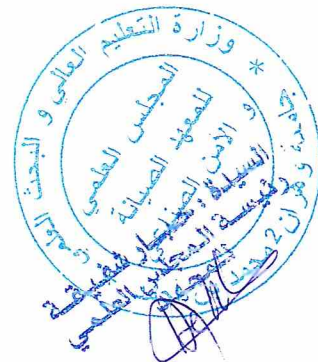 * وزارة التعليم العالي و البحث العلمي * جامعة وهران 2 محمد بن
المجلس العلمي
لمعهد الصيانة
و الأمن الصناعي
السيدة :
رئيسة المجلس العلمي